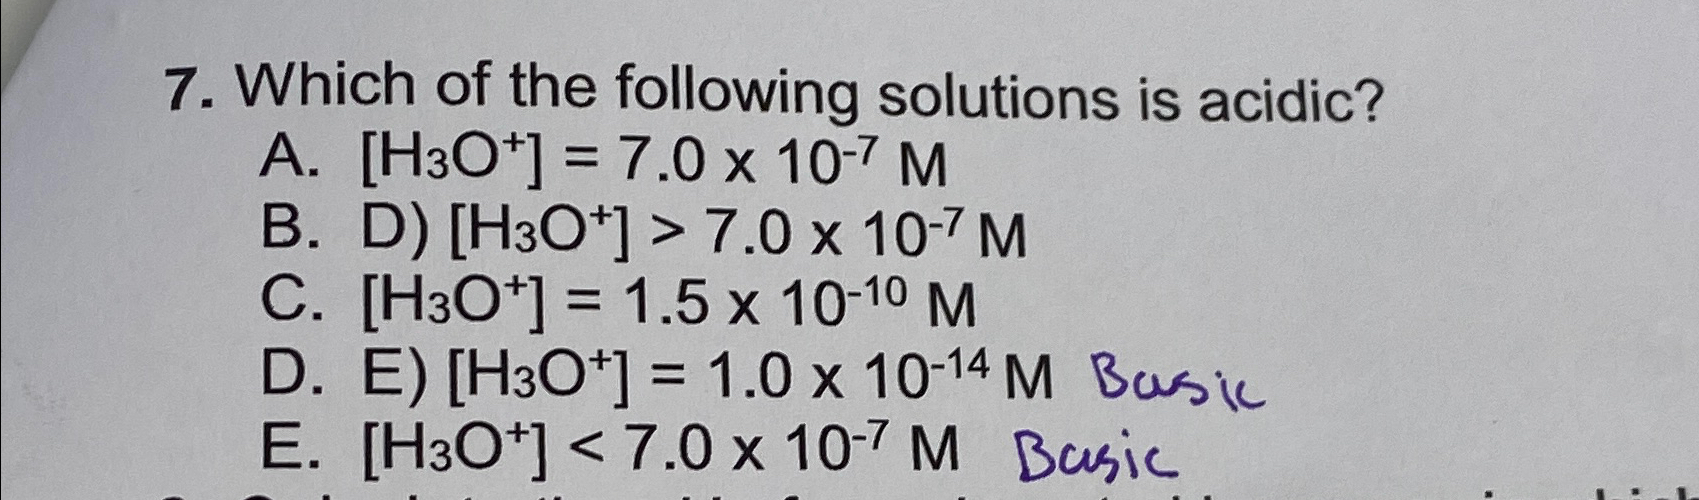 7. Which of the following solutions is acidic?
A. [H₃O⁺] = 7.0 x 10⁻⁷ M
B. D) [H₃O⁺] > 7.0 x 10⁻⁷ M
C. [H₃O⁺] = 1.5 x 10⁻¹⁰ M
D. E) [H₃O⁺] = 1.0 x 10⁻¹⁴ M Basic
E. [H₃O⁺] < 7.0 x 10⁻⁷ M Basic